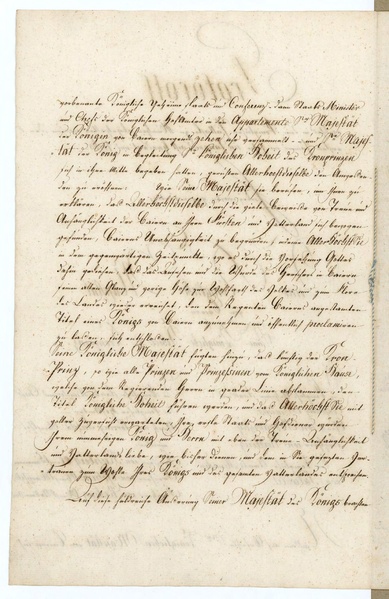 vorbenante Königliche Geheime Staats und Conferenz- dann Staats Minister
und Chefs der Königlichen Hofstäbe in den Appartements Ihrer Majestät
der Königin von Baiern morgens zehen Uhr versammelt, und Se Majes-
tät der König in Begleitung Sr Königlichen Hoheit des Kronprinzen
sich in ihre Mitte begeben hatten, geruhten Allerhöchstdieselbe den Anwesen-
den zu eröffnen: Seine Majestät sie berufen, um Ihnen zu
erklären, daß Allerhöchstdieselbe durch die Beweise von Treue und
Anhänglichkeit der Baiern an Ihre Fürsten und Vatterland sich bewogen
gefunden, Baierns Unabhängigkeit zu begründen,
in dem gegenwärtigen Zeitpunkte, wo es durch die Vorsehung Gottes
dahin gediehen, daß das Ansehen und die Würde des Herrschers in Baiern
seinen alten Glanz und vorige Höhe zur Wohlfahrt des Volkes und zum Flor
des Landes wieder erreichet, den dem Regenten Baierns angestammten
Titel eines Königs von Baiern anzunehmen und öffentlich proclamiren
zu lassen, sich entschlossen.
Seine Königliche Majestät fügten hinzu, daß künftig der Kron-
Prinz, so wie alle Prinzen und Prinzessinen vom Königlichen Hause,
welche von dem Regierenden Herrn in grader Linie abstammen, den
Titel Königliche Hoheit führen werden, und daß Allerhöchst Sie mit
voller Zuversicht erwarteten, Ihre erste Staats und Hofdiener würden
Ihrem nunmehrigen König und Herrn mit eben der Treue Anhänglichkeit
und Vatterlandsliebe, wie bisher dienen, und dem in Sie gesezten Zu-
trauen zum Wohle Ihres Königs und des gesamten Vatterlandes entsprechen.
Auf diese huldreiche Äusserung Seiner Majestät des Königs brachten